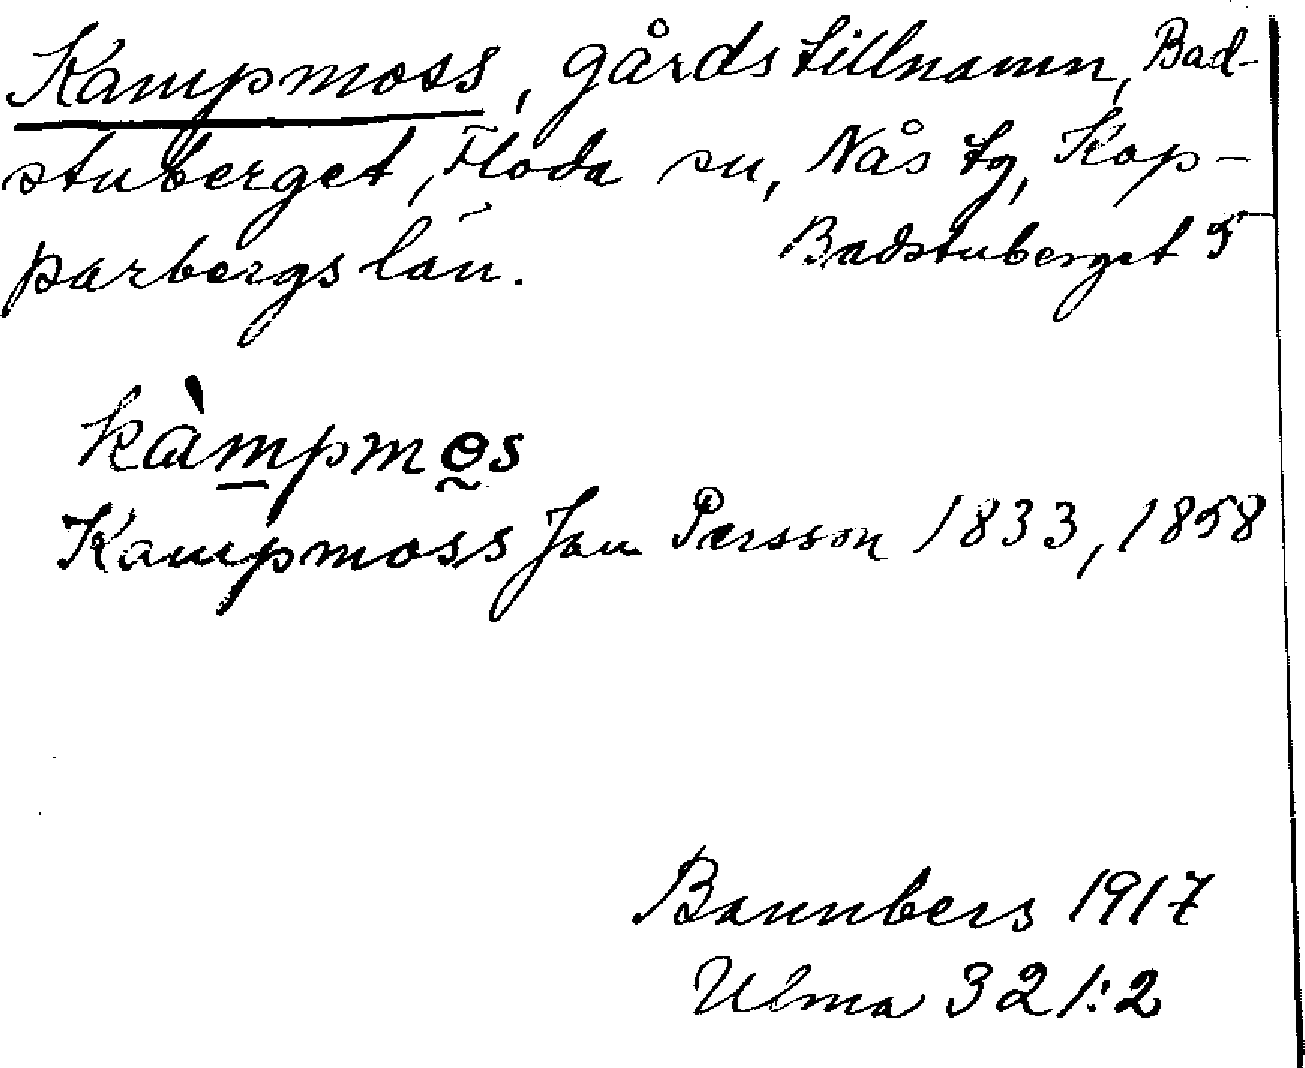 Kampmoss, gårdstillnamn, Bad-
stuberget, Floda sn, Nås tg, Kop-
parbergs län. Badstuberget 5
kàmpmɵs
Kampmoss Jan Persson 1833, 1858
Bannbers 1917
Ulma 321:2